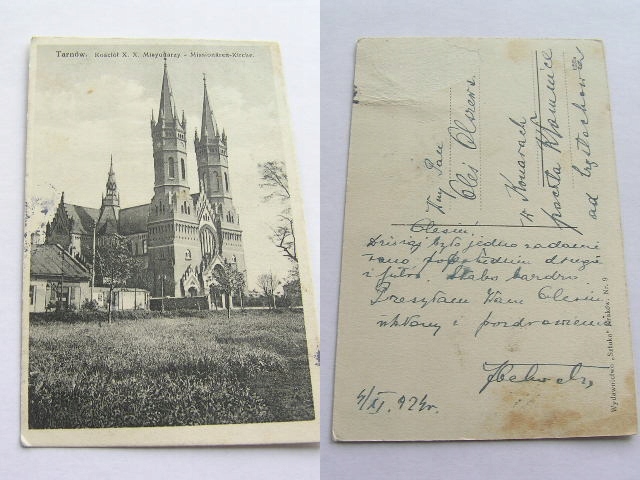 Tarnów. Kościół X. X. Misyonarzy - Missionären-Kirche.
Wny Pan
Olci Olszews.
w Konarach
poczta Kłomnice
ad Częstochowa
Olesiu!
Dzisiaj było jedno zadanie
i jutro. Słabo bardzo.
Przesyłam Wam Olesiu
ukłony i pozdrowienia
4/XI. 924r.
Wydawnictwo „Sztuka" Kraków. Nr. 9